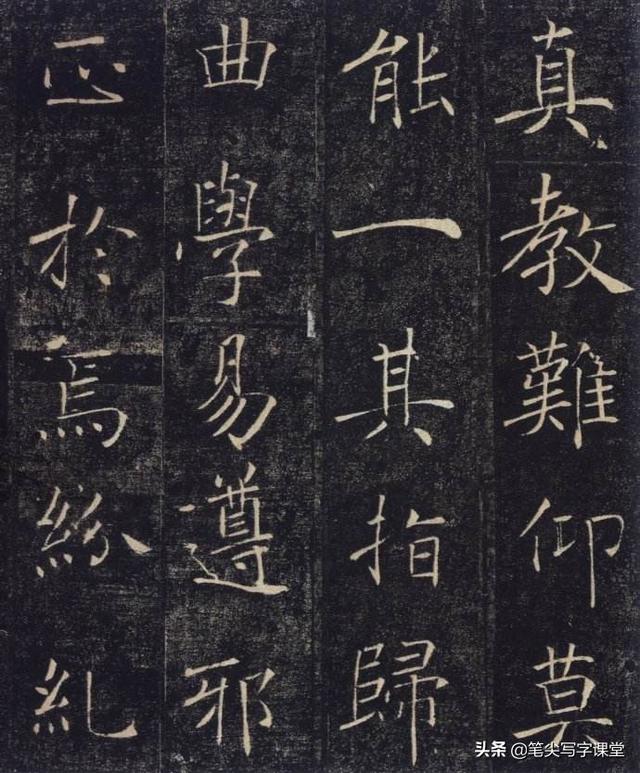 真教難仰莫
能一其指歸
曲學易遵邪
正於焉紛糺
头条 @笔尖写字课堂